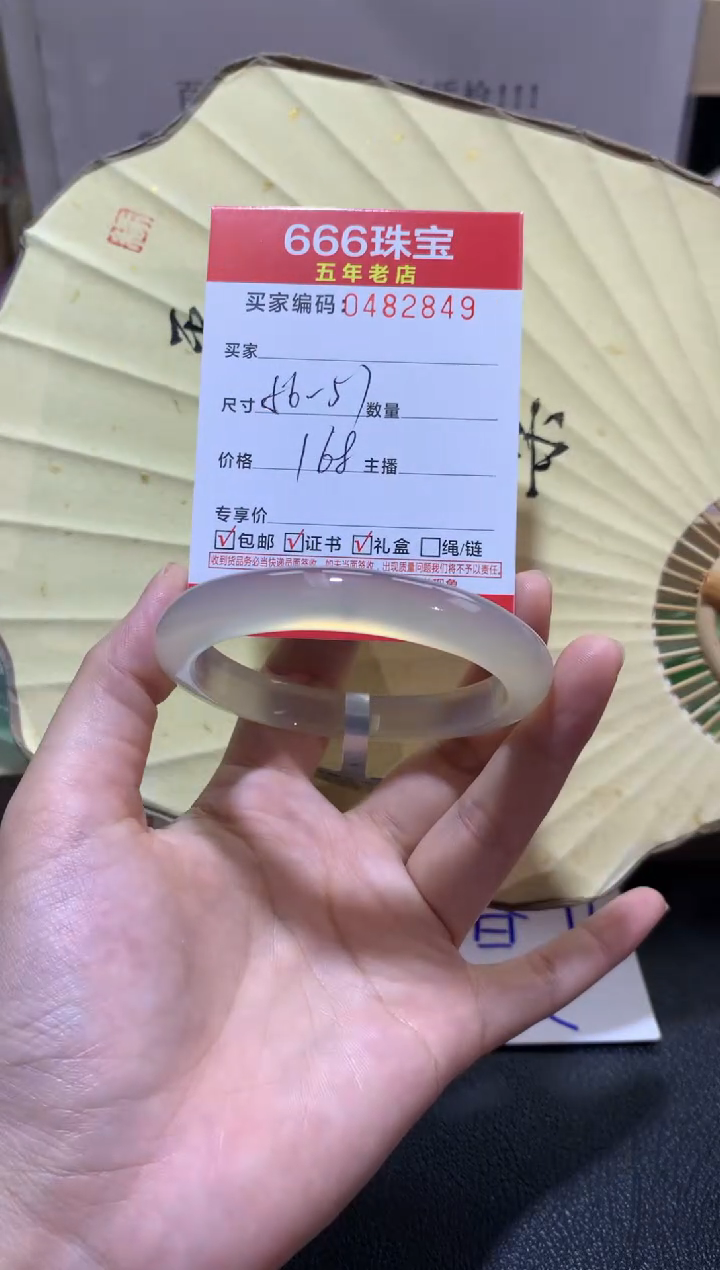 666珠宝
五年老店
买家编码:0482849
买家
尺寸 56-57 数量
价格 168 主播
专享价
☑包邮 ☑证书 ☑礼盒 □绳/链
收到货品务必当快递员面签收，如未当面签收，出现质量问题我们将不予以责任。